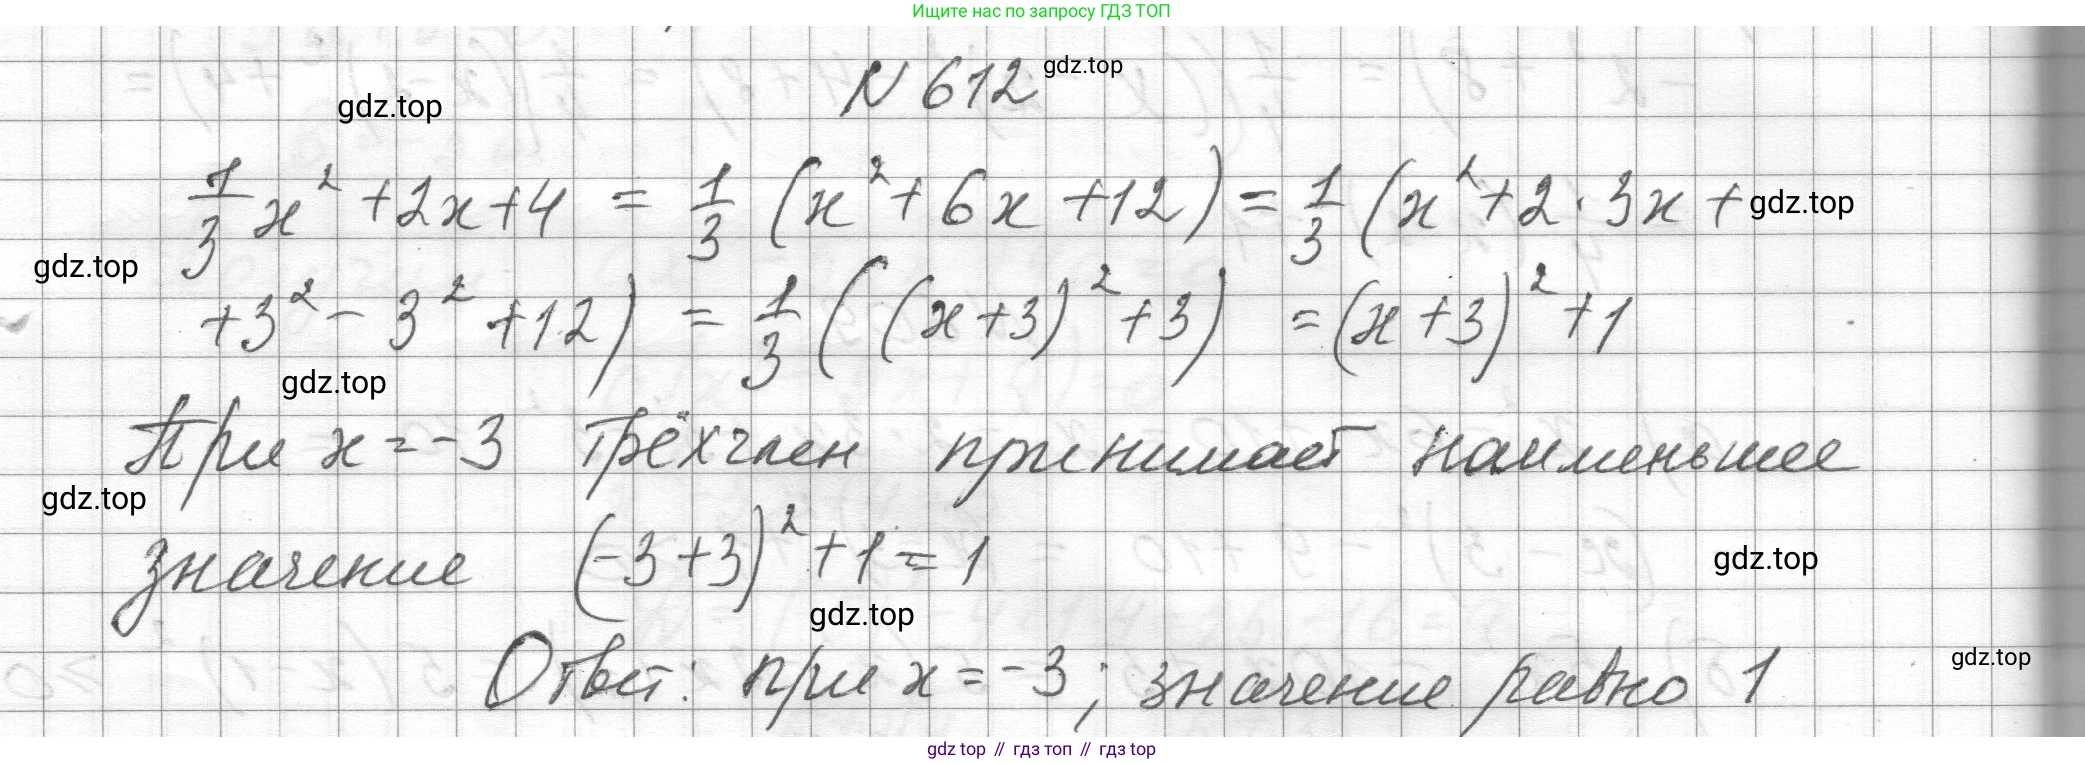 Ищите нас по запросу ГДЗ ТОП
N 612 gdz.top
gdz.top
1/3 x² + 2x + 4 = 1/3 (x² + 6x + 12) = 1/3 (x² + 2 · 3x + gdz.top
gdz.top
+ 3² - 3² + 12) = 1/3 ((x + 3)² + 3) = (x + 3)² + 1
gdz.top
При x = -3 трёхчлен принимает наименьшее
gdz.top
значение (-3 + 3)² + 1 = 1
gdz.top
gdz.top
Ответ: при x = -3; значение равно 1
gdz.top
gdz top // гдз топ // гдз top